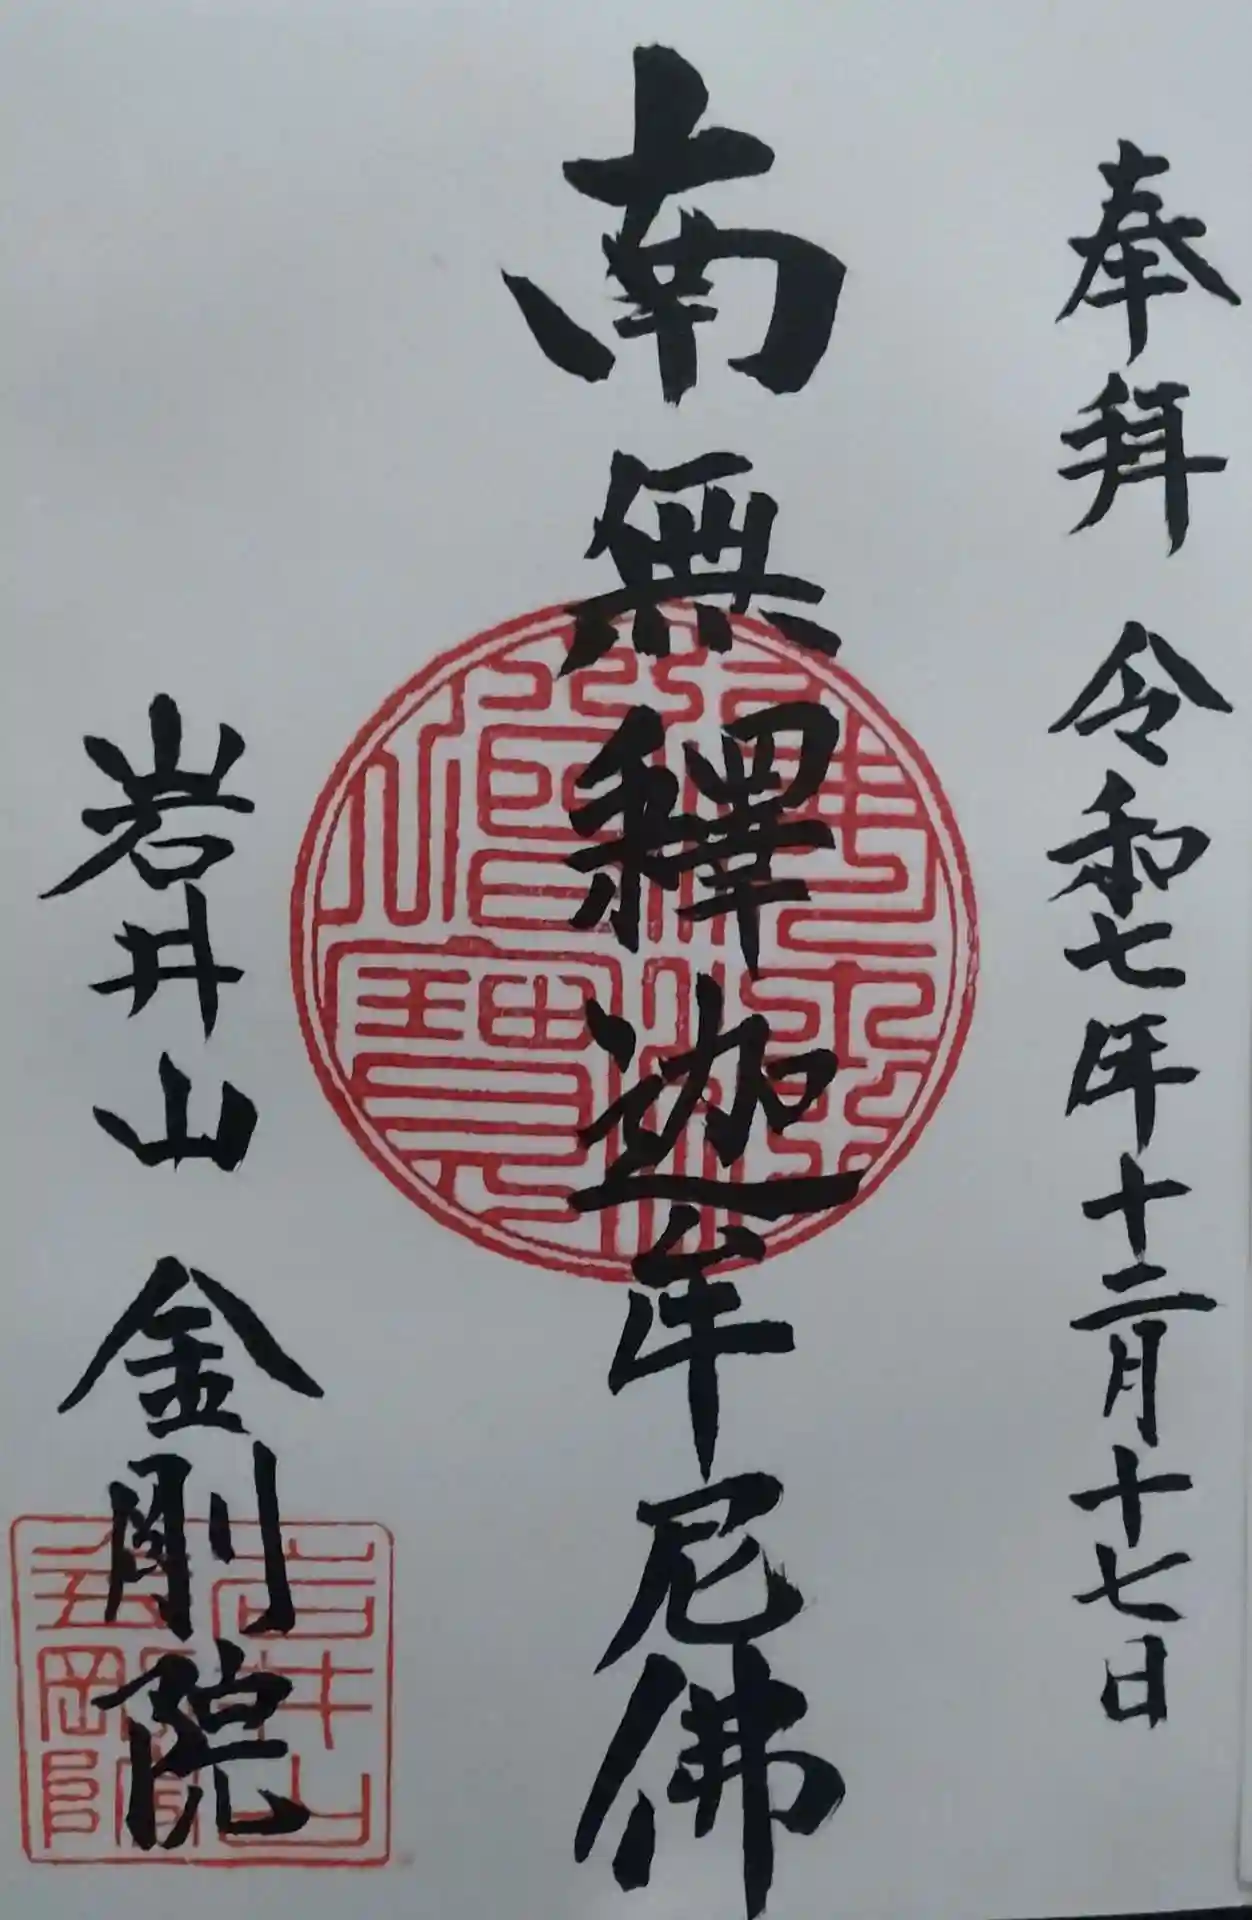 奉拜 令和七年十二月十七日
南無釋迦牟尼佛
岩井山 金剛院
岩井山
金剛院